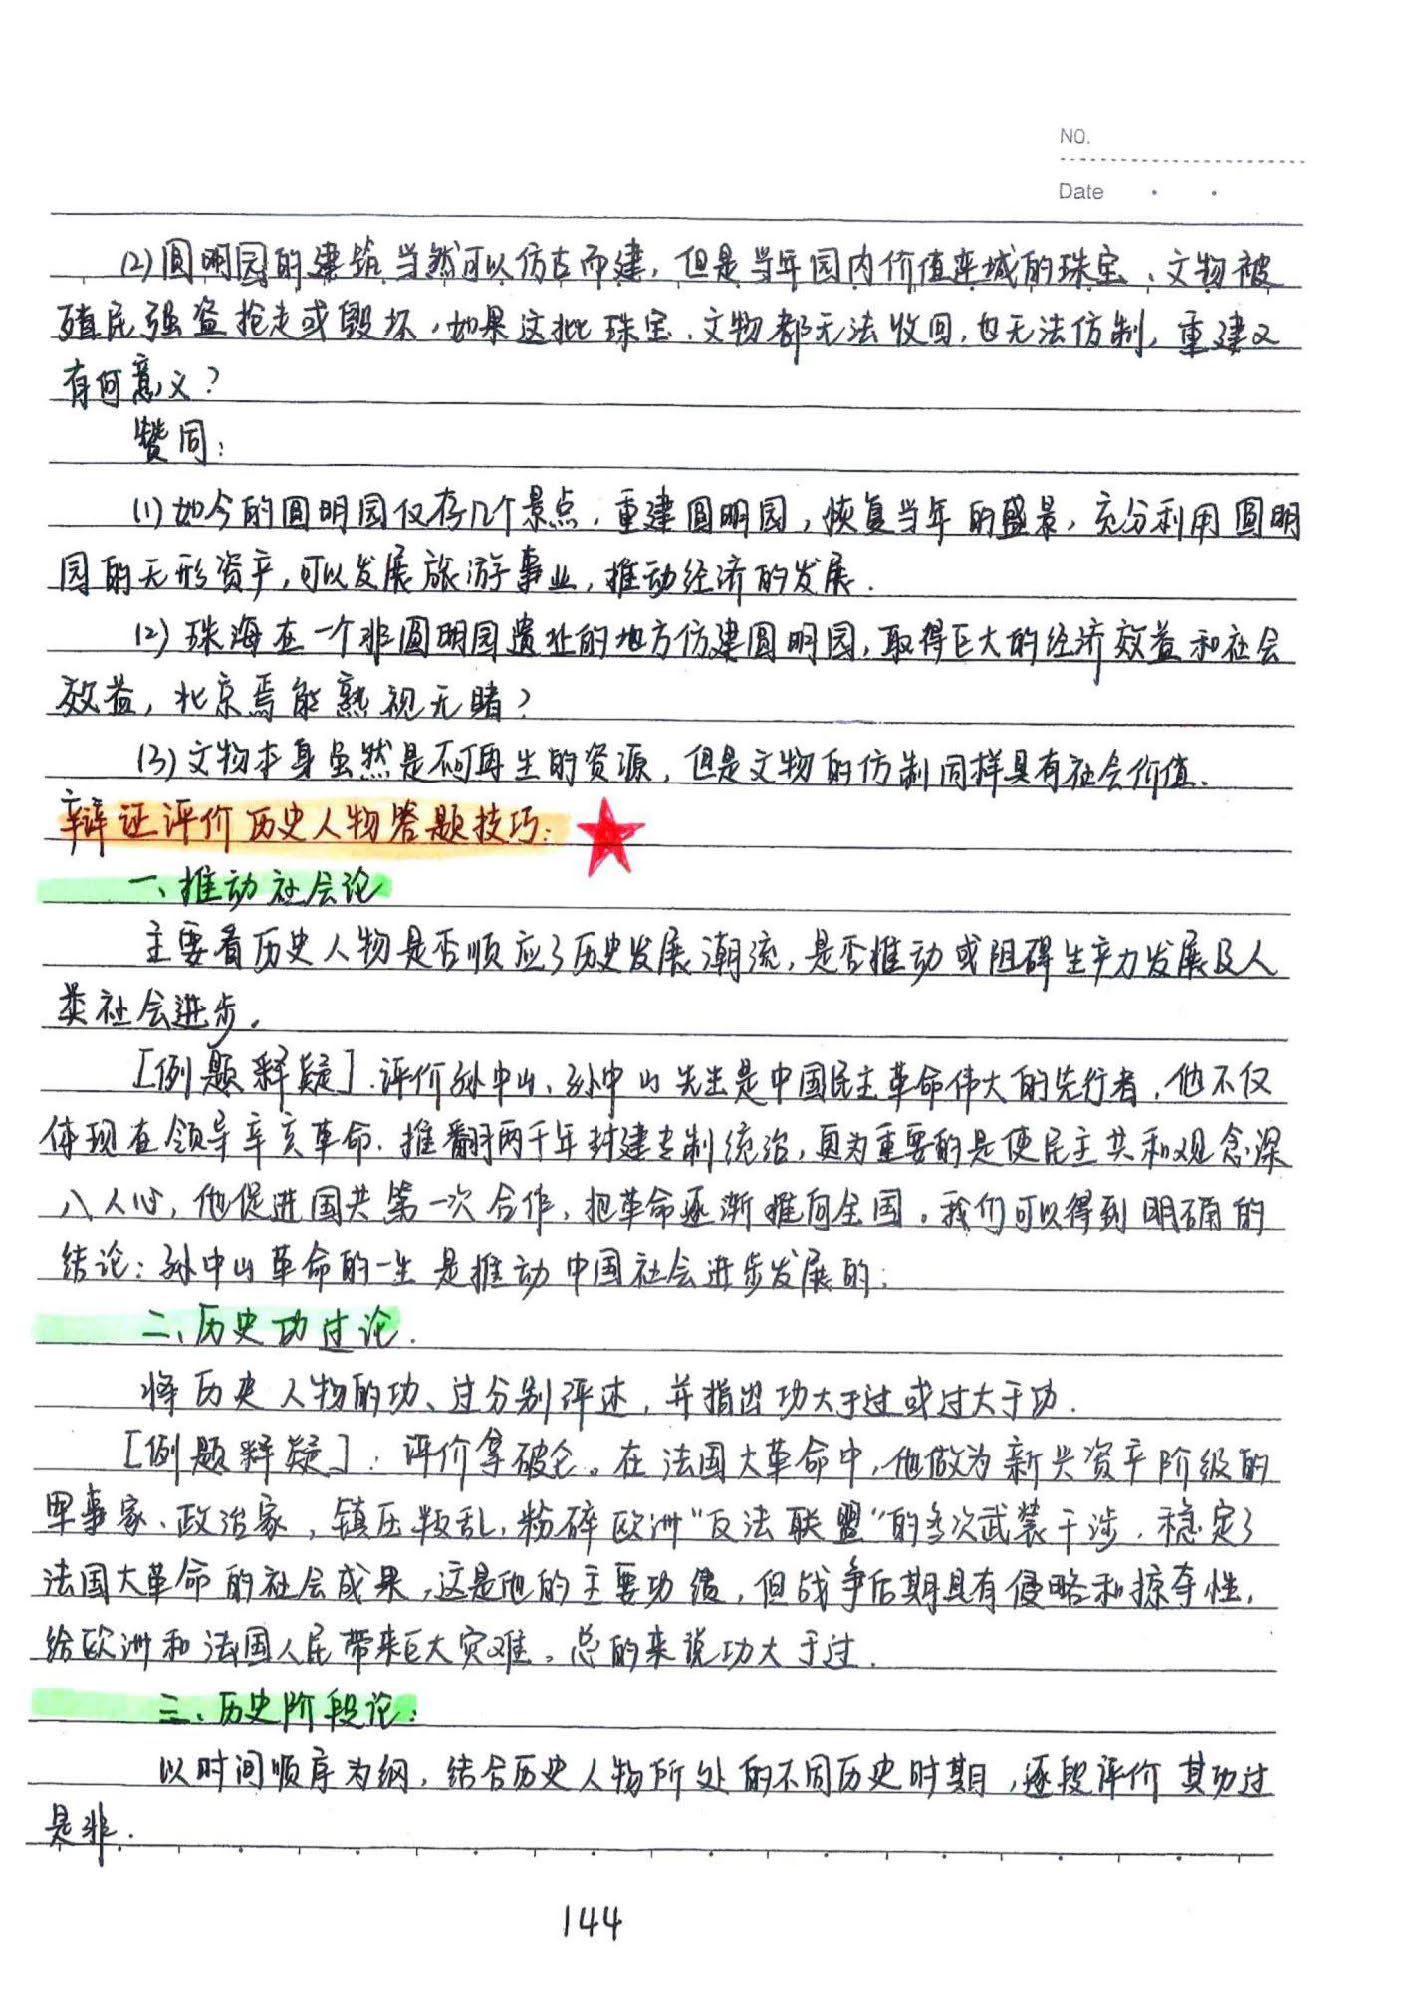 NO.
Date
(2)圆明园的建筑当然可以仿古而建，但是当年园内价值连城的珠宝、文物被
殖民强盗抢走或毁坏，如果这批珠宝、文物都无法收回，也无法仿制，重建又
有何意义？
赞同：
(1)如今的圆明园仅存几个景点，重建圆明园，恢复当年的盛景，充分利用圆明
园的无形资产，可以发展旅游事业，推动经济的发展.
(2)珠海在一个非圆明园遗址的地方仿建圆明园，取得巨大的经济效益和社会
效益，北京焉能熟视无睹？
(3)文物本身虽然是不可再生的资源，但是文物的仿制同样具有社会价值.
辩证评价历史人物答题技巧：
一、推动社会论
主要看历史人物是否顺应了历史发展潮流，是否推动或阻碍生产力发展及人
类社会进步。
[例题释疑].评价孙中山、孙中山先生是中国民主革命伟大的先行者，他不仅
体现在领导辛亥革命.推翻两千年封建专制统治，更为重要的是使民主共和观念深
入人心，他促进国共第一次合作，把革命逐渐推向全国。我们可以得到明确的
结论：孙中山革命的一生是推动中国社会进步发展的；
二、历史功过论.
将历史人物的功、过分别评述，并指出功大于过或过大于功.
[例题释疑]：评价拿破仑。在法国大革命中，他做为新兴资产阶级的
军事家、政治家，镇压叛乱，粉碎欧洲“反法联盟”的多次武装干涉，稳定了
法国大革命的社会成果，这是他的主要功绩，但战争后期具有侵略和掠夺性，
给欧洲和法国人民带来巨大灾难。总的来说功大于过.
三、历史阶段论：
以时间顺序为纲，结合历史人物所处的不同历史时期，逐段评价其功过
是非.
144